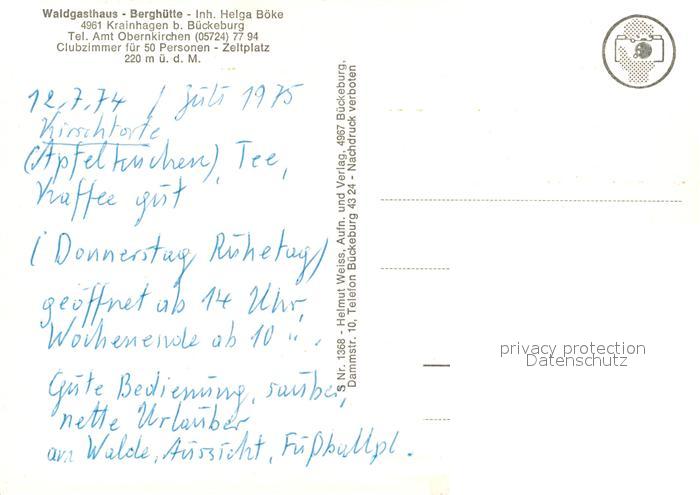 Waldgasthaus - Berghütte - Inh. Helga Böke
4961 Krainhagen b. Bückeburg
Tel. Amt Obernkirchen (05724) 77 94
Clubzimmer für 50 Personen - Zeltplatz
220 m ü. d. M.
12.7.74 / Juli 1975
Kirschtorte
(Apfelkuchen), Tee,
Kaffee gut
(Donnerstag Ruhetag)
geöffnet ab 14 Uhr,
Wochenende ab 10 " .
Gute Bedienung, sauber,
nette Urlauber
am Walde, Aussicht, Fußballpl.
S Nr. 1368 - Helmut Weiss, Aufn. und Verlag, 4967 Bückeburg,
Dammstr. 10, Telefon Bückeburg 43 24 - Nachdruck verboten
privacy protection
Datenschutz